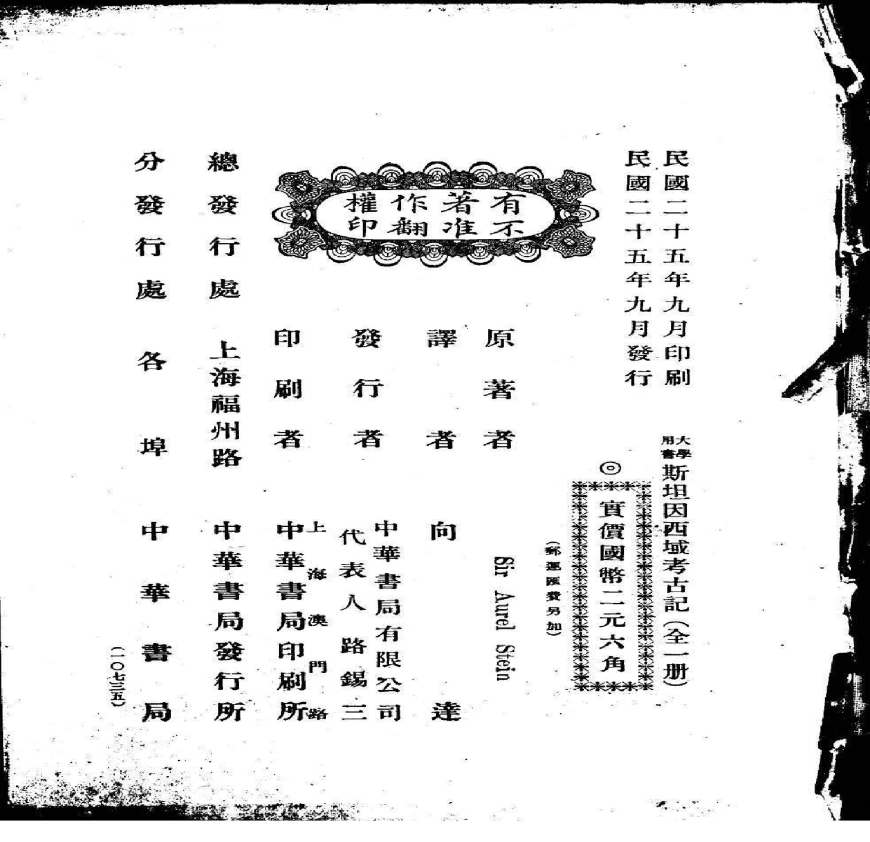 民國二十五年九月印刷
民國二十五年九月發行
大學用書 斯坦因西域考古記（全一册）
◎
實價國幣二元六角
（郵運匯費另加）
有著作權
不准翻印
原著者 Sir Aurel Stein
譯者 向達
發行者 中華書局有限公司
代表人 路錫三
印刷者 上海澳門路
中華書局印刷所
總發行處 上海福州路 中華書局發行所
分發行處 各埠 中華書局
（一〇七三五）